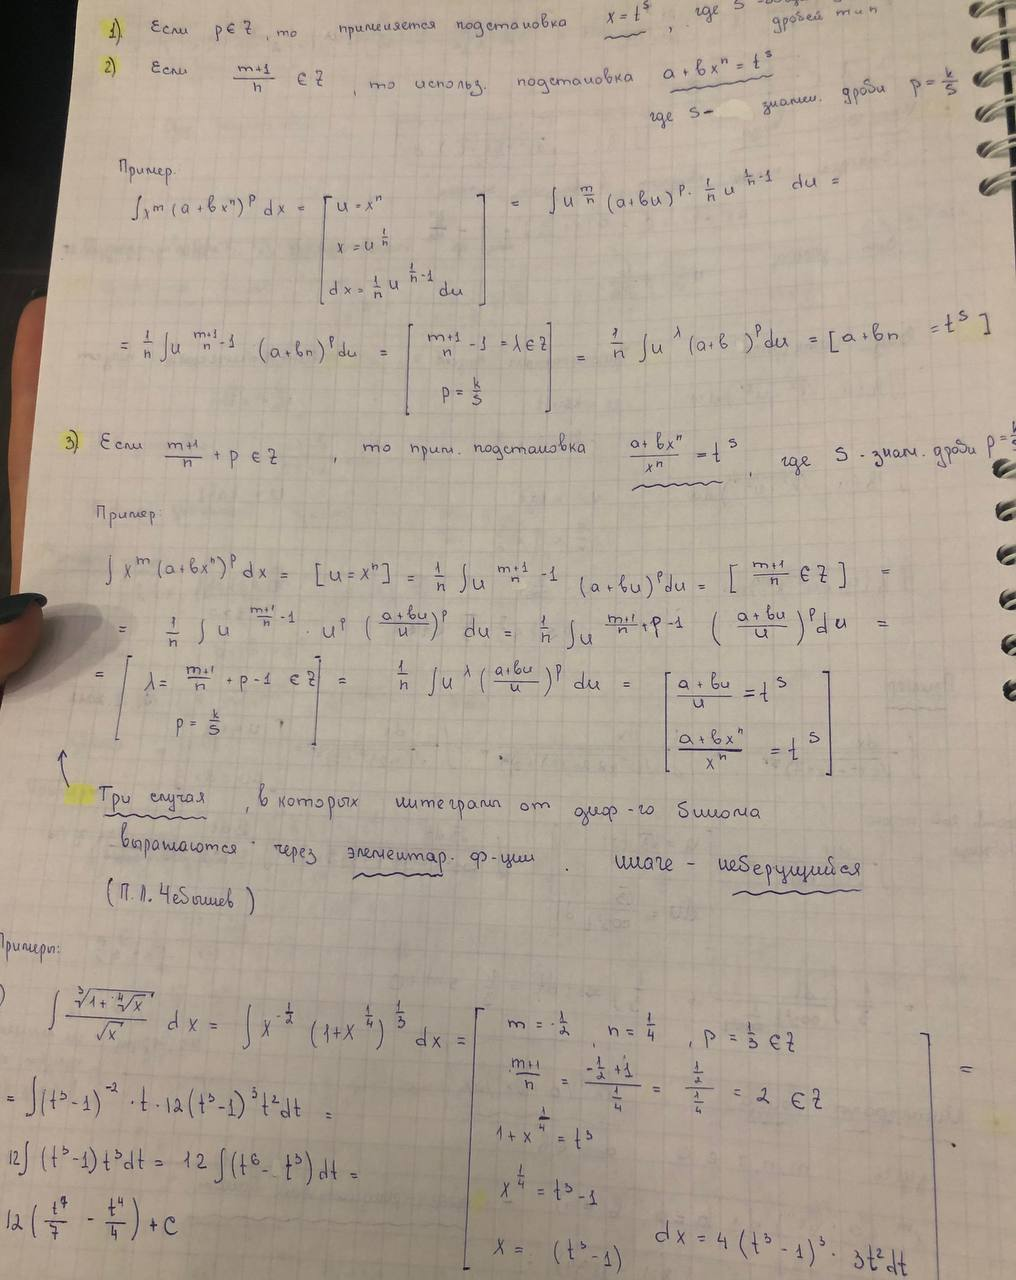 1) Если p∈Z, то применяется подстановка x = t^s, где s -
дробей m и n
2) Если (m+1)/n ∈Z, то использ. подстановка a + bx^n = t^s
где s - знамен. дроби p = k/s
Пример.
∫x^m (a + bx^n)^p dx = [u = x^n = ∫u^(m/n) (a+bu)^p · 1/n u^(1/n -1) du =
x = u^(1/n)
dx = 1/n u^(1/n -1) du]
= 1/n ∫u^((m+1)/n -1) (a+bn)^p du = [(m+1)/n - 1 = λ ∈ Z = 1/n ∫u^λ (a+b )^p du = [a + bn = t^s]
p = k/s]
3) Если (m+1)/n + p ∈ Z, то прим. подстановка (a+bx^n)/x^n = t^s, где S - знам. дроби p = k/s
Пример:
∫x^m (a+bx^n)^p dx = [u = x^n] = 1/n ∫u^((m+1)/n -1) (a+bu)^p du = [(m+1)/n ∈ Z] =
= 1/n ∫u^((m+1)/n -1) · u^p ((a+bu)/u)^p du = 1/n ∫u^((m+1)/n +p-1) ((a+bu)/u)^p du =
= [λ = (m+1)/n + p-1 ∈ Z = 1/n ∫u^λ ((a+bu)/u)^p du = [(a+bu)/u = t^s
p = k/s] (a+bx^n)/x^n = t^s]
Три случая, в которых интеграл от диф-го бинома
выражаются через элементар. ф-ции. иначе - неберущийся
(П.Л. Чебышев)
Примеры:
) ∫ ∛(1+∜x)/√x dx = ∫x^(-1/2) (1+x^(1/4))^(1/3) dx = [m = -1/2, n = 1/4, p = 1/3 ∈Z
(m+1)/n = (-1/2 +1)/(1/4) = (1/2)/(1/4) = 2 ∈Z =
= ∫(t³-1)^(-2) · t · 12(t³-1)³t²dt =
1+x^(1/4) = t³
12∫(t³-1)t³dt = 12∫(t⁶ - t³)dt =
x^(1/4) = t³-1
12(t⁷/7 - t⁴/4) + C
x = (t³-1) dx = 4(t³-1)³ · 3t²dt]